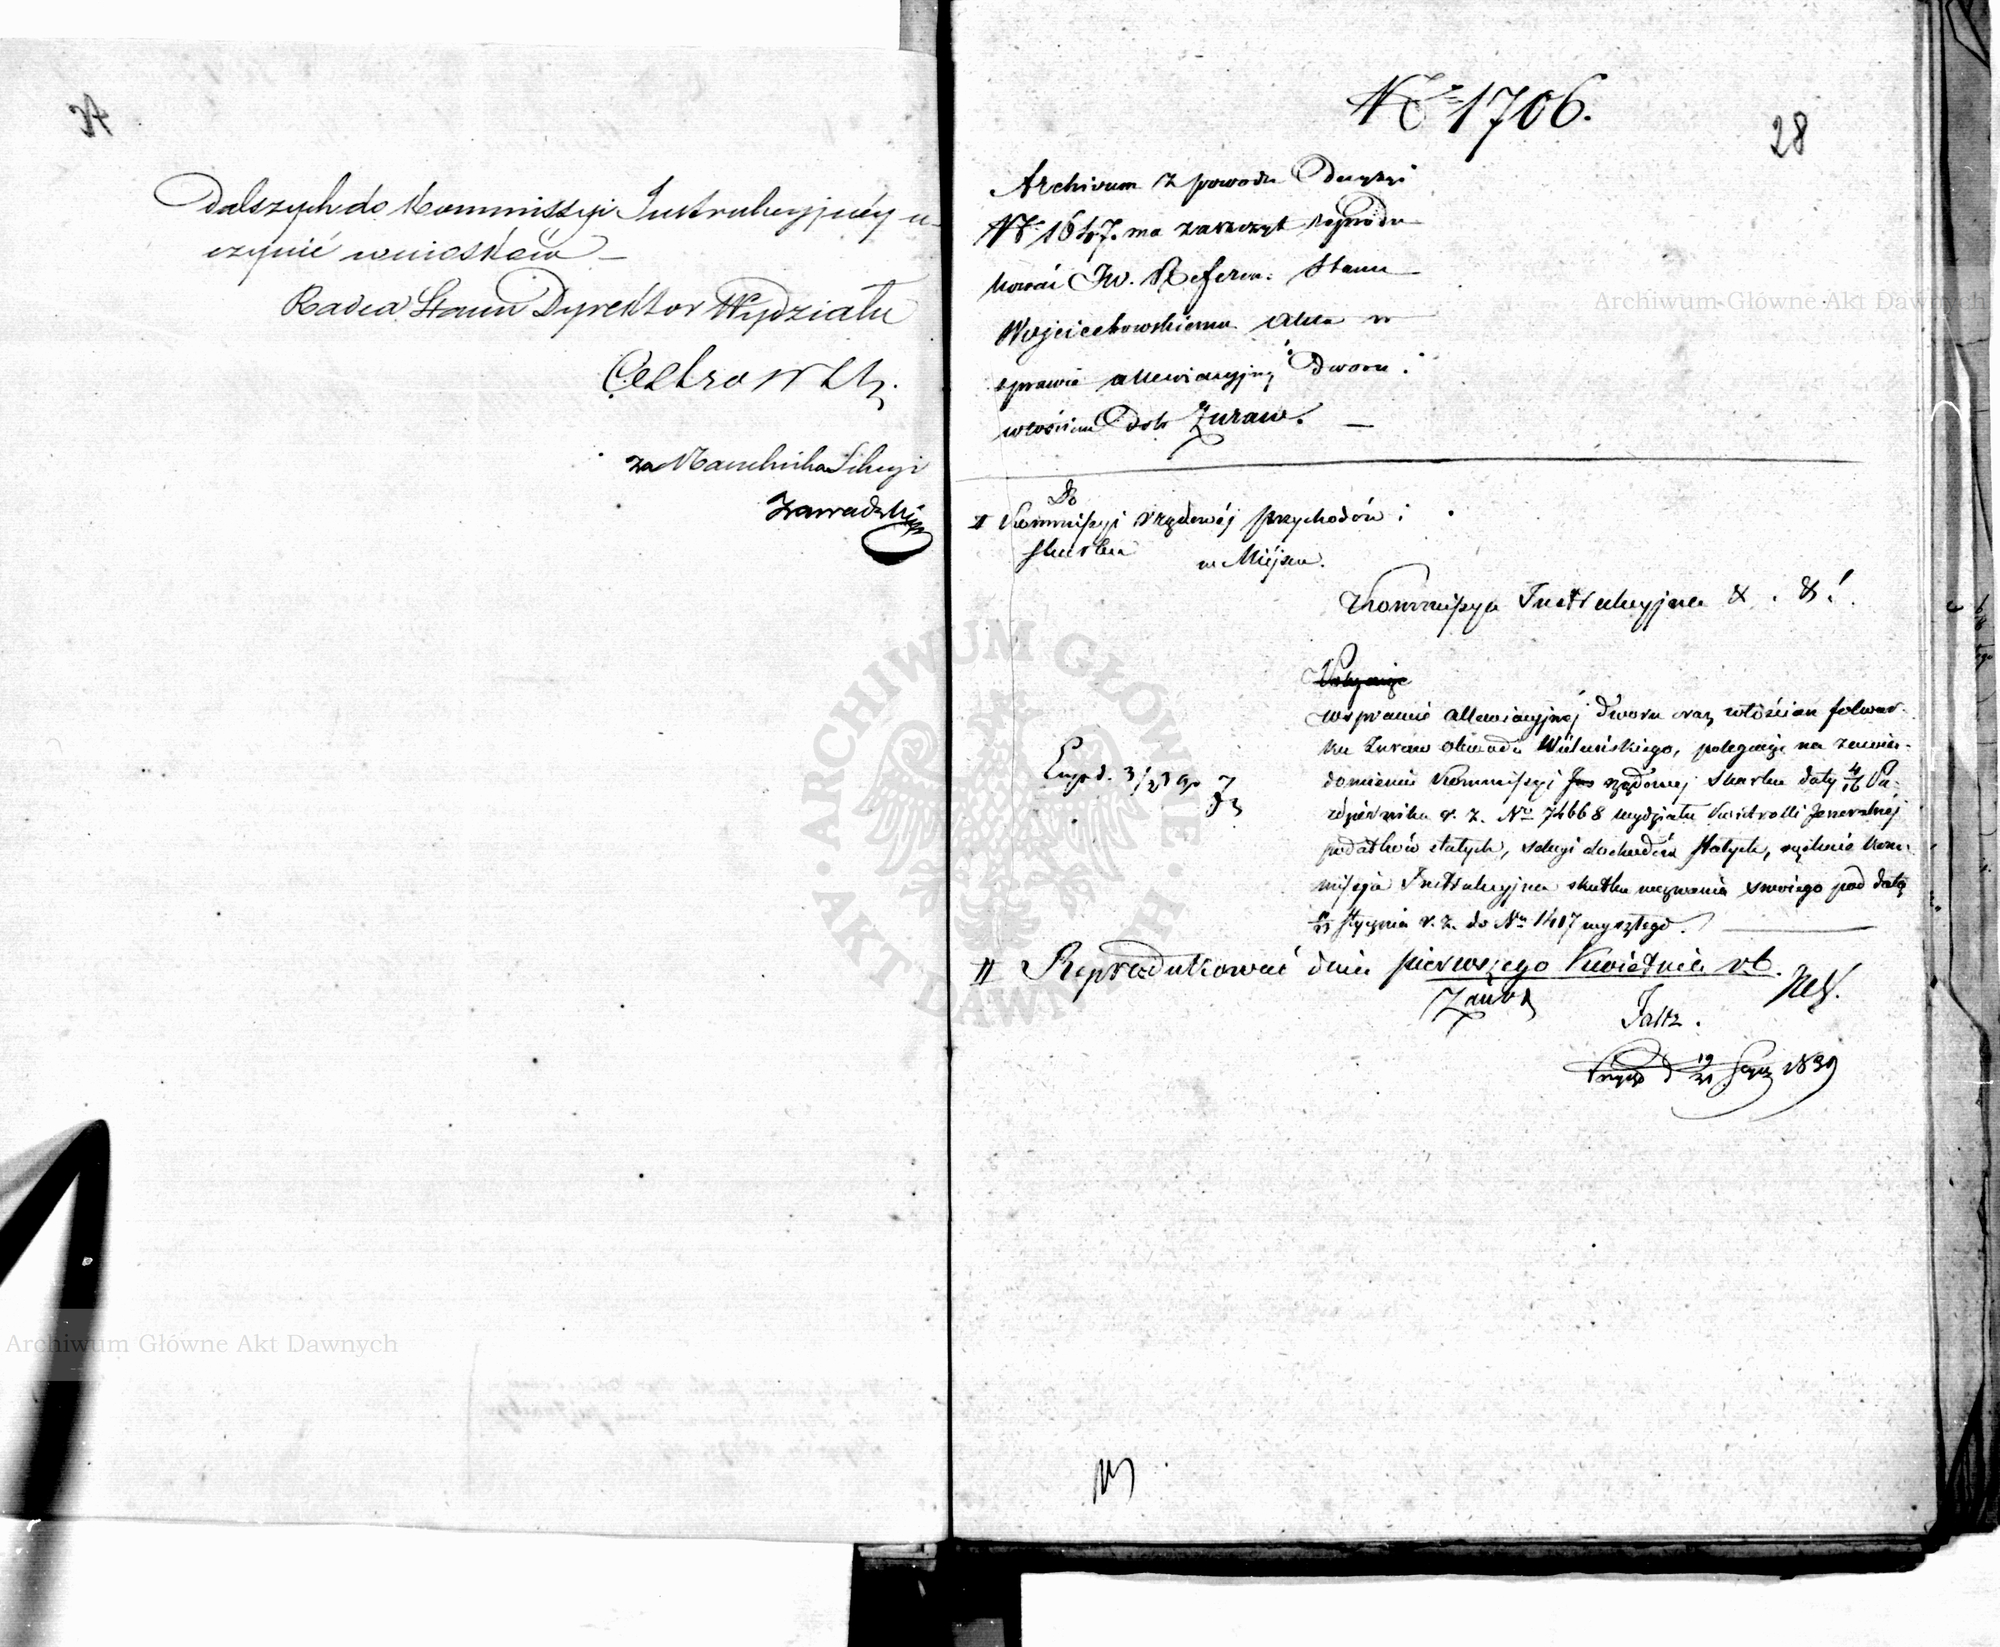 Dalszych do Kommissyi Instrukcyjnéy u-
czynić wniosków –
Radca Stanu Dyrektor Wydziału
za Naczelnika Sekcyi
Zawadzki
No 1706.
28
Archivum z powodu Decyzyi
No 1647. ma zaszczyt reprodu-
kować JW. Referen. Stanu
Wojciechowskiemu akta w
sprawie allewiacyjnej Dworu i
włościan Dobr Żuraw. —
Do
I Kommissyi rządowéj Przychodów i
Skarbu
w Miéjscu.
Kommissya Instrukcyjna & . & .
w sprawie allewiacyjnéj Dworu oraz włościan folwar-
ku Żuraw obwodu Wieluńskiego, polegając na zawia-
domieniu Kommissyi rządowej Skarbu daty 4/16 Pa-
ździernika r. z. No 74668 wydziału Kontrolli Jeneralnéj
podatków stałych, sekcyi dochodów stałych, oczekuje Kom-
missya Instrukcyjna skutku wezwania swoiego pod datą
Stycznia r. z. do No 1417 wyszłego.
II Reprodukować dnia pierwszego Kwietnia r. b.
1839
Archiwum Główne Akt Dawnych
Archiwum Główne Akt Dawnych
ARCHIWUM GŁÓWNE · AKT DAWNYCH ·